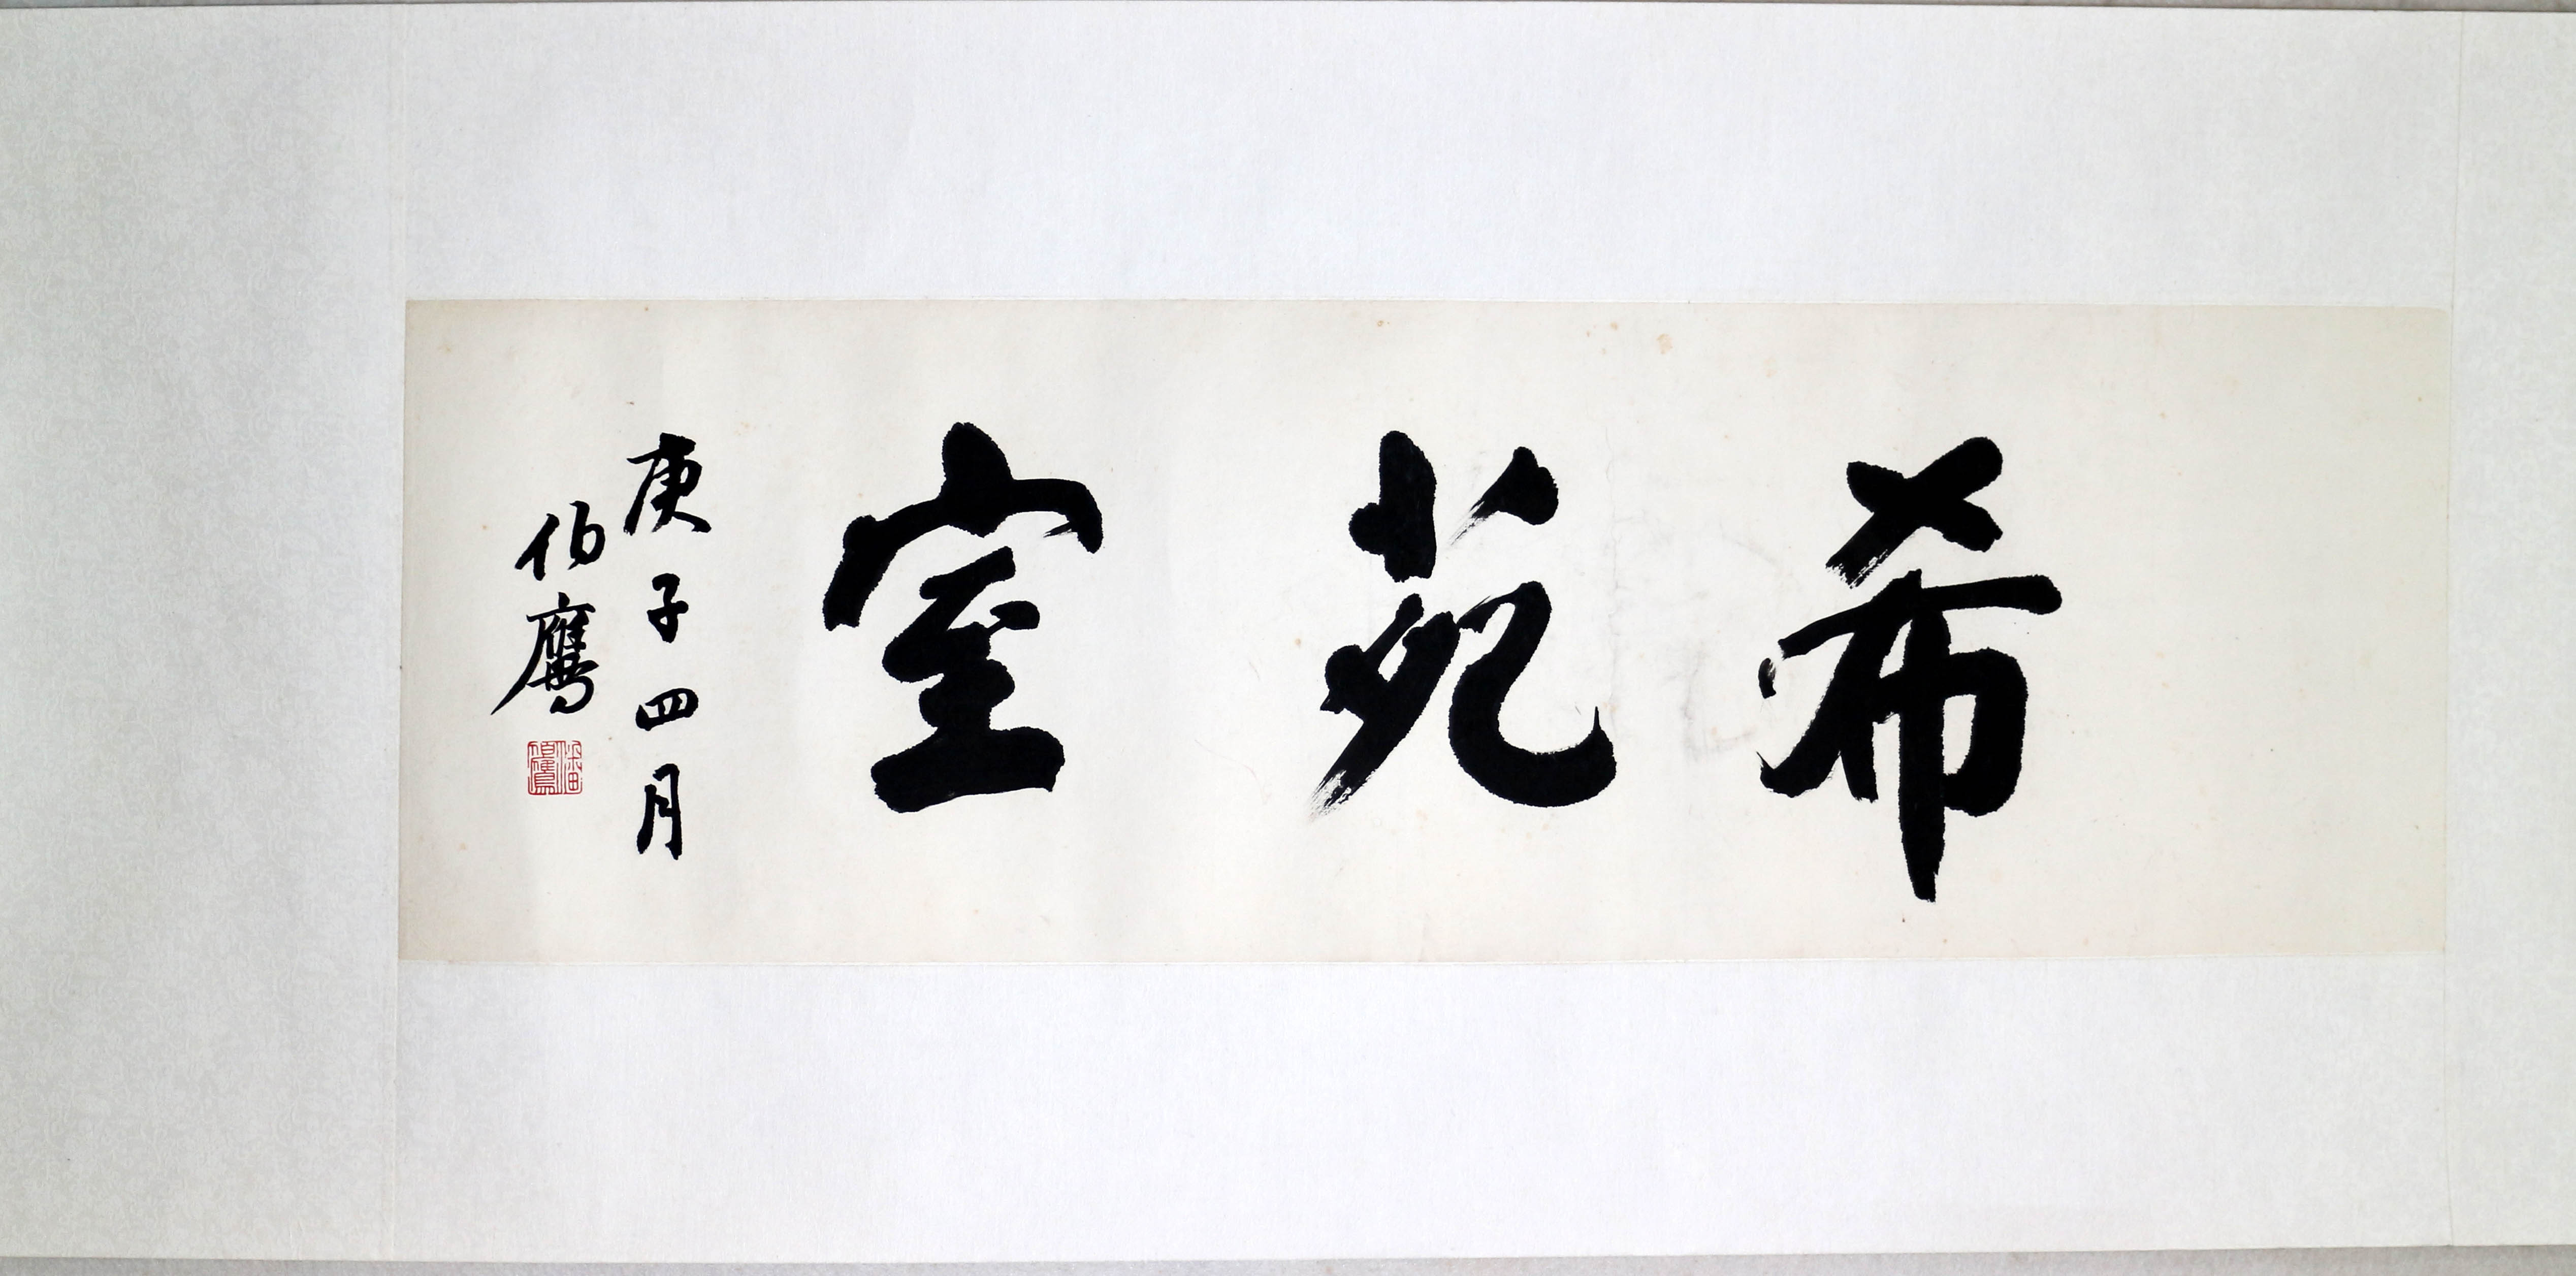 希苑室
庚子四月
伯鷹
潘伯鷹